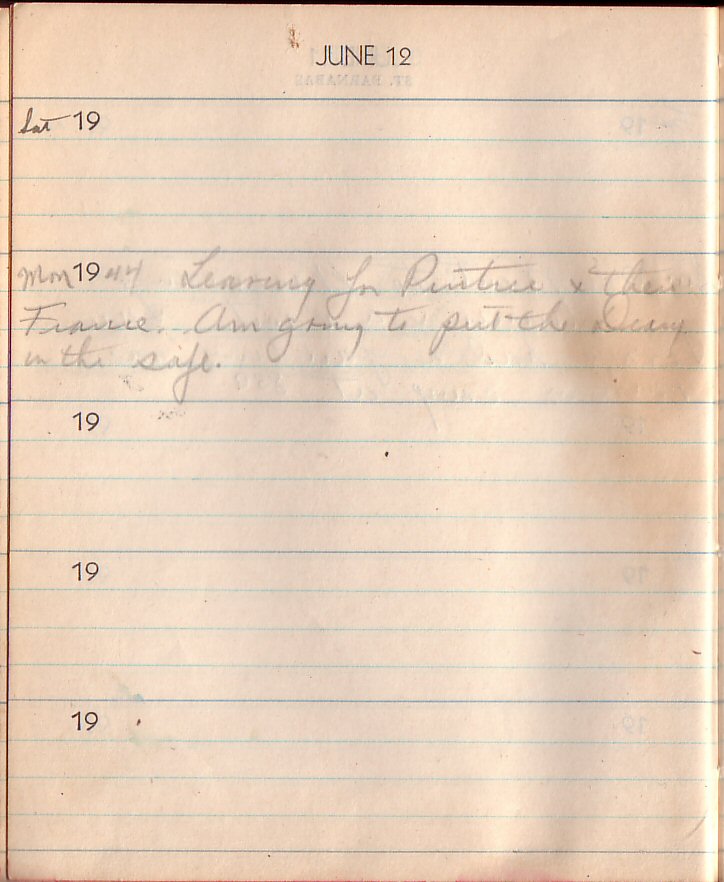 JUNE 12
Sat 19
Mon 1944 Leaving for
France. Am going to put the Diary
in the safe.
19
19
19